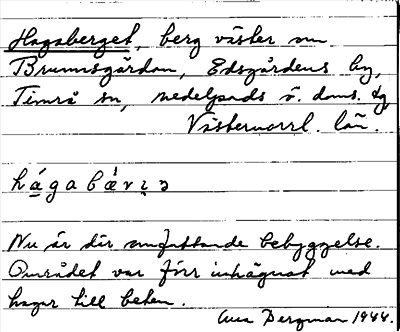 Hagaberget, berg väster om
Brunnsgården, Edsgårdens by,
Timrå sn, Medelpads ö. doms. tg
Västernorrl. län.
hágabǽrıə
Nu är där omfattande bebyggelse.
Området var förr inhägnat med
hagar till beten.
Bergman 1944.